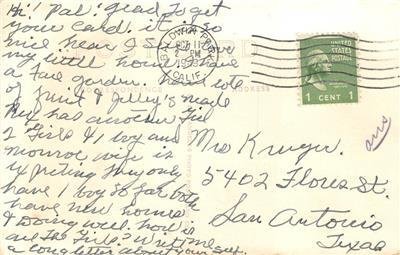 Hi! Pal: Glad to get
your card. it is so
nice hear I still love
my little home. I have
a fair garden. hand lots
of fruit & Jelly's made
Rex has another Girl
2 Girls & 1 boy and
monroe, wife is
expecting they only
have 1 boy so far both
have new homes
& doing well. how is
all the Girls? Write me
a long letter about your self.
BALDWIN PARK
OCT 11
PM
CALIF.
UNITED STATES POSTAGE
1 CENT 1
CORRESPONDENCE
ADDRESS
Mrs Krueger.
5402 Flores St.
San Antonio
Texas
ans